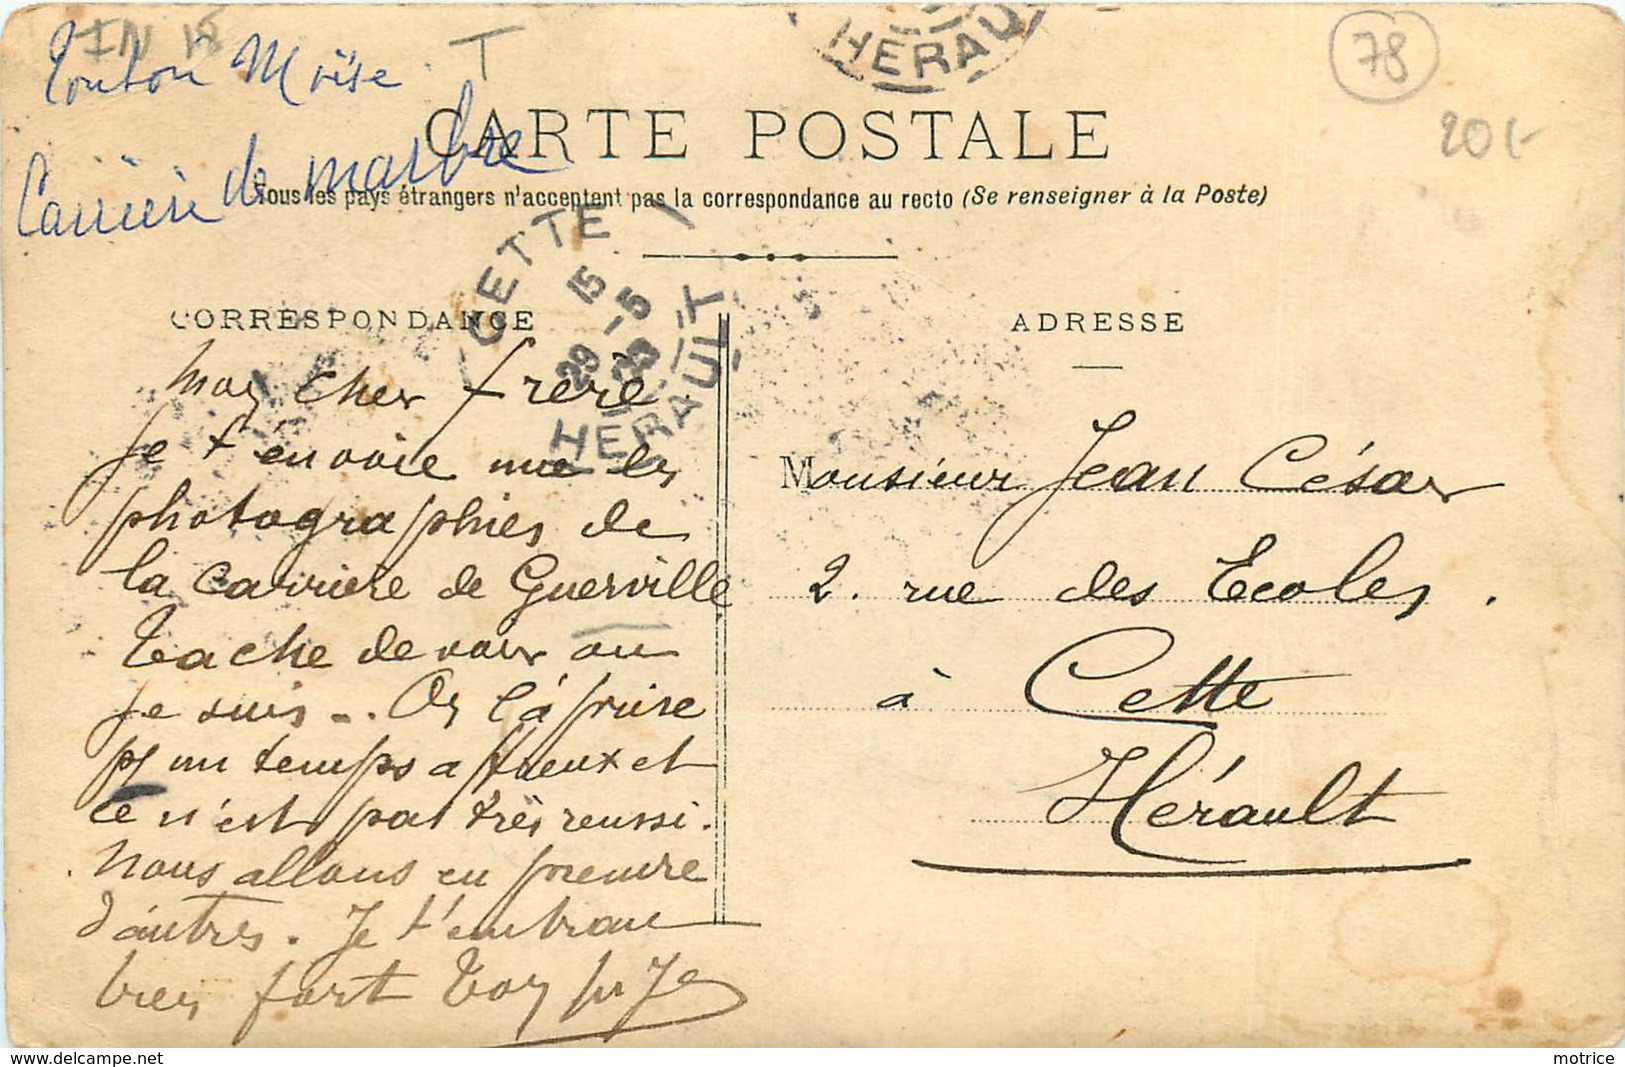 IN 18
Tonton Moïse
T
HERAU
78
20 F
CARTE POSTALE
Carrière de marbre
Tous les pays étrangers n'acceptent pas la correspondance au recto (Se renseigner à la Poste)
CETTE
15
29 -5
HERAULT
CORRESPONDANCE
Mon cher frère
Je t'envoie une des
photographies de
la carrière de Guerville
Tache de voir ou
je suis -. On l'a prise
par un temps affreux et
ce n'est pas très reussi.
Nous allons en prendre
d'autres. Je t'embrasse
bien fort Ton
ADRESSE
Monsieur Jean César
2. rue des Ecoles.
à Cette
Hérault
www.delcampe.net
motrice